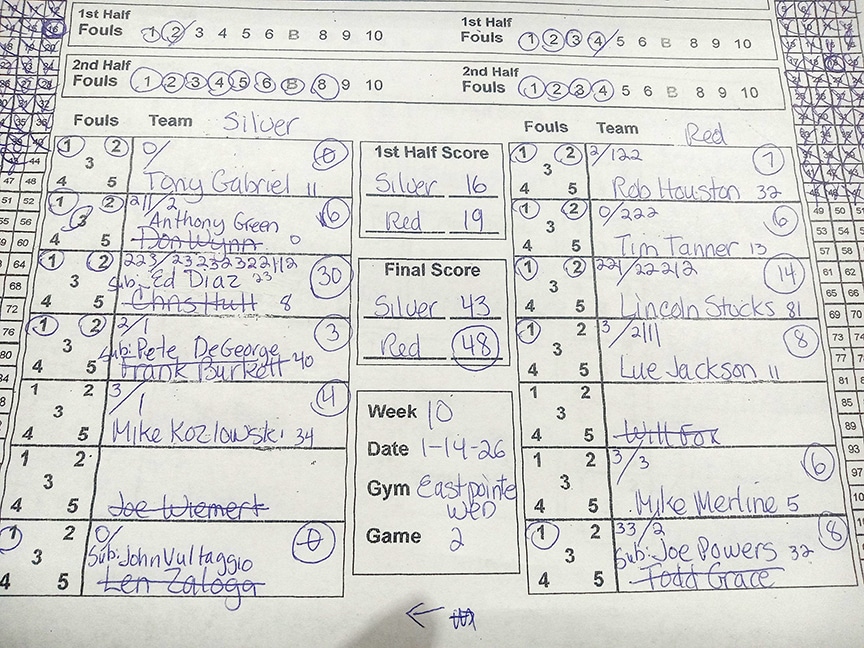 1st Half
Fouls 1 2 3 4 5 6 B 8 9 10
1st Half
Fouls 1 2 3 4 5 6 B 8 9 10
2nd Half
Fouls 1 2 3 4 5 6 B 8 9 10
2nd Half
Fouls 1 2 3 4 5 6 B 8 9 10
Fouls Team Silver
1 2 0/ 0
3
4 5 Tony Gabriel 11
1 2 211/2 6
3 Anthony Green
4 5 Don Wynn 0
1 2 223/23232322112 30
3 Sub: Ed Diaz 23
4 5 Chris Hutt 8
1 2 2/1 3
3 Sub: Pete DeGeorge
4 5 Frank Burkett 40
1 2 3/1 4
3
4 5 Mike Kozlowski 34
1 2
3
4 5 Joe Wiemert
1 2 0/ 0
3 Sub: John Vultaggio
4 5 Len Zaloga
1st Half Score
Silver 16
Red 19
Final Score
Silver 43
Red 48
Week 10
Date 1-14-26
Gym Eastpointe
WED
Game 2
Fouls Team Red
1 2 2/122 7
3
4 5 Rob Houston 32
1 2 0/222 6
3
4 5 Tim Tanner 13
1 2 221/22212 14
3
4 5 Lincoln Stocks 81
1 2 3/2111 8
3
4 5 Lue Jackson 11
1 2
3
4 5 Will Fox
1 2 3/3 6
3
4 5 Mike Merline 5
1 2 33/2 8
3 Sub: Joe Powers 32
4 5 Todd Grace
←